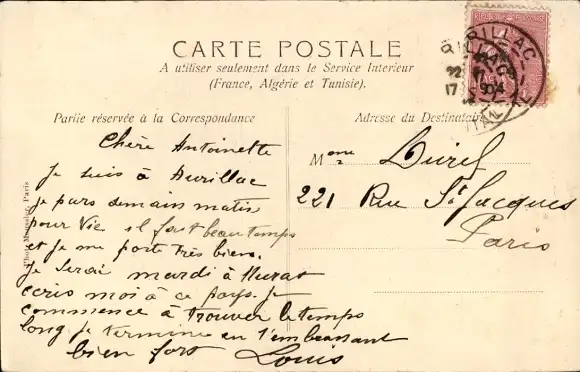 CARTE POSTALE
A utiliser seulement dans le Service Interieur
(France, Algérie et Tunisie).
Partie réservée à la Correspondance
Chère Antoinette
Je suis à Aurillac
je pars demain matin
pour Vic il fait beau temps
et je me porte très bien.
Je serai mardi à Murat
ecris moi à ce pays. Je
commence à trouver le temps
long, je termine en t'embrassant
bien fort Louis
Adresse du Destinataire
Mme Durel
221 Rue St Jacques
Paris
AURILLAC
22
17 04